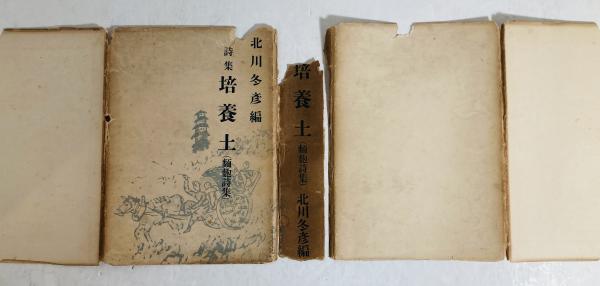 北川冬彦編
詩集 培養土
(麺麭詩集)
培養土(麺麭詩集)北川冬彦編